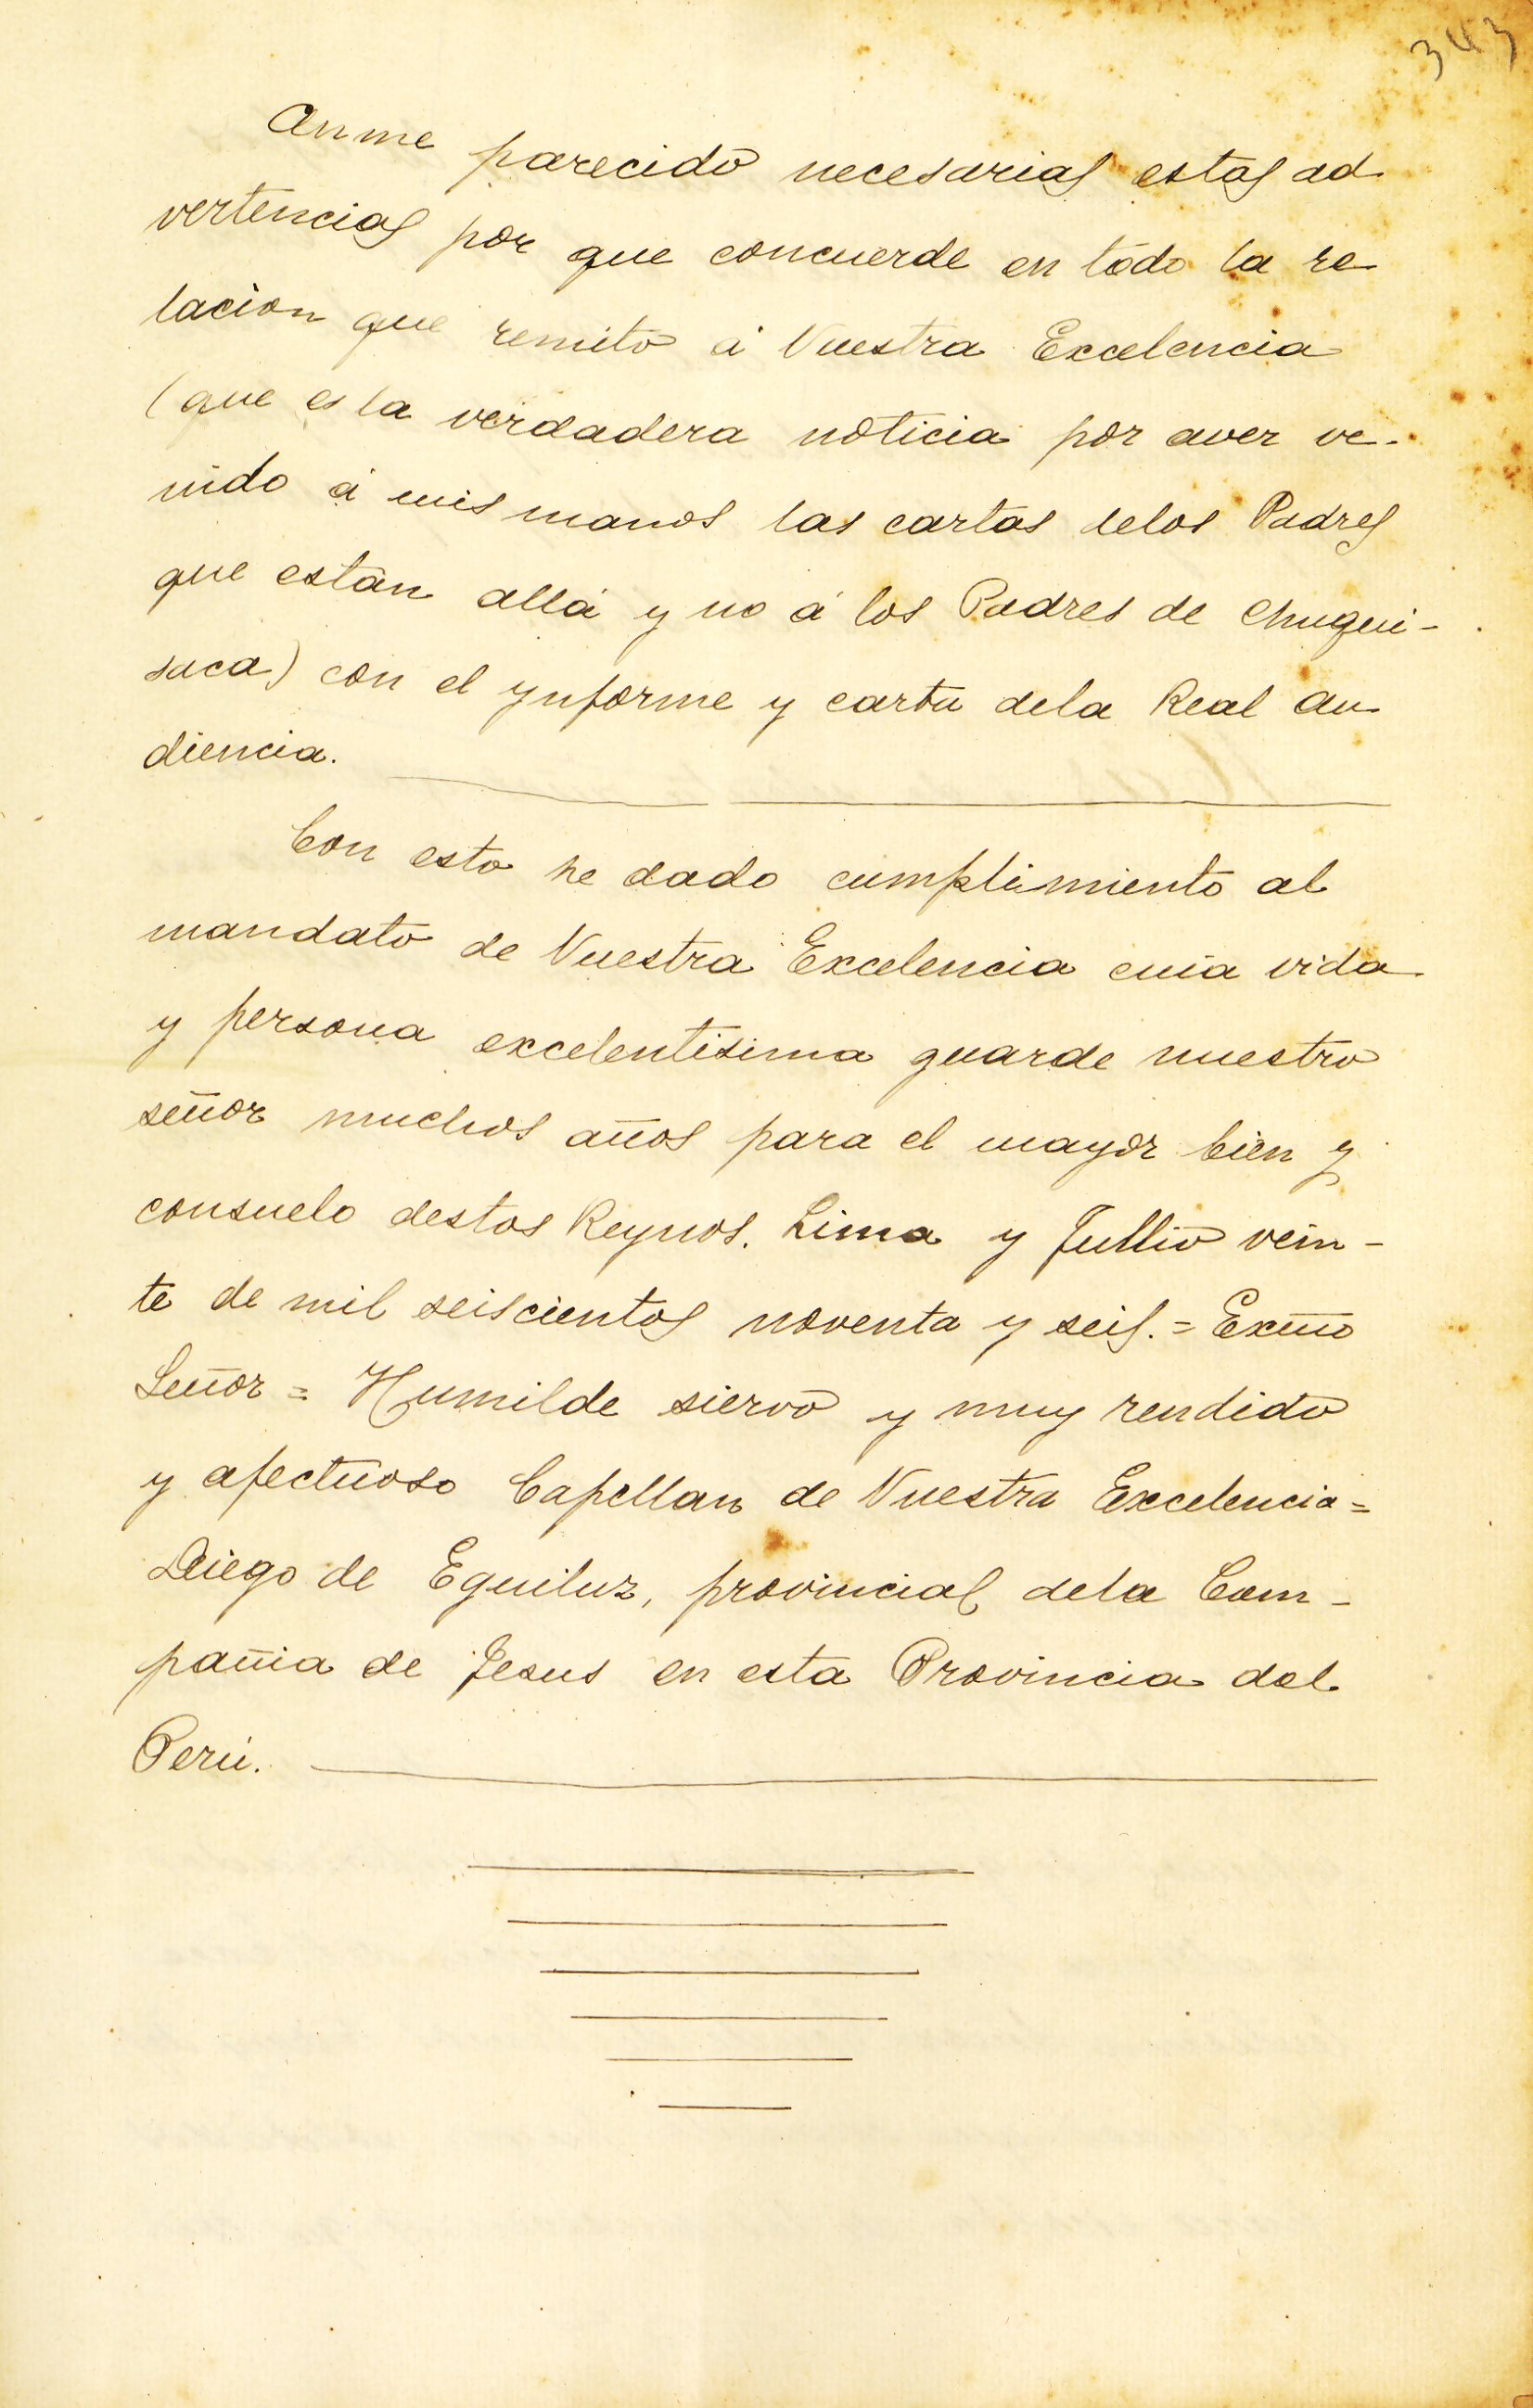 343
Anme parecido necesarias estas ad
vertencias por que concuerde en todo la re
lacion que remito á Vuestra Excelencia
(que es la verdadera noticia por aver ve-
nido á mis manos las cartas delos Padres
que están allá y no á los Padres de Chuqui-
saca) con el ynforme y carta dela Real Au
diencia.
Con esto he dado cumplimiento al
mandato de Vuestra Excelencia cuia vida
y persona excelentisima guarde nuestro
señor muchos años para el mayor bien y
consuelo destos Reynos. Lima y Jullio vein-
te de mil seiscientos noventa y seis. = Exmo
Señor = Humilde siervo y muy rendido
y afectuoso Capellan de Vuestra Excelencia =
Diego de Eguiluz, provincial dela Com-
pañia de Jesus en esta Provincia del
Perú.